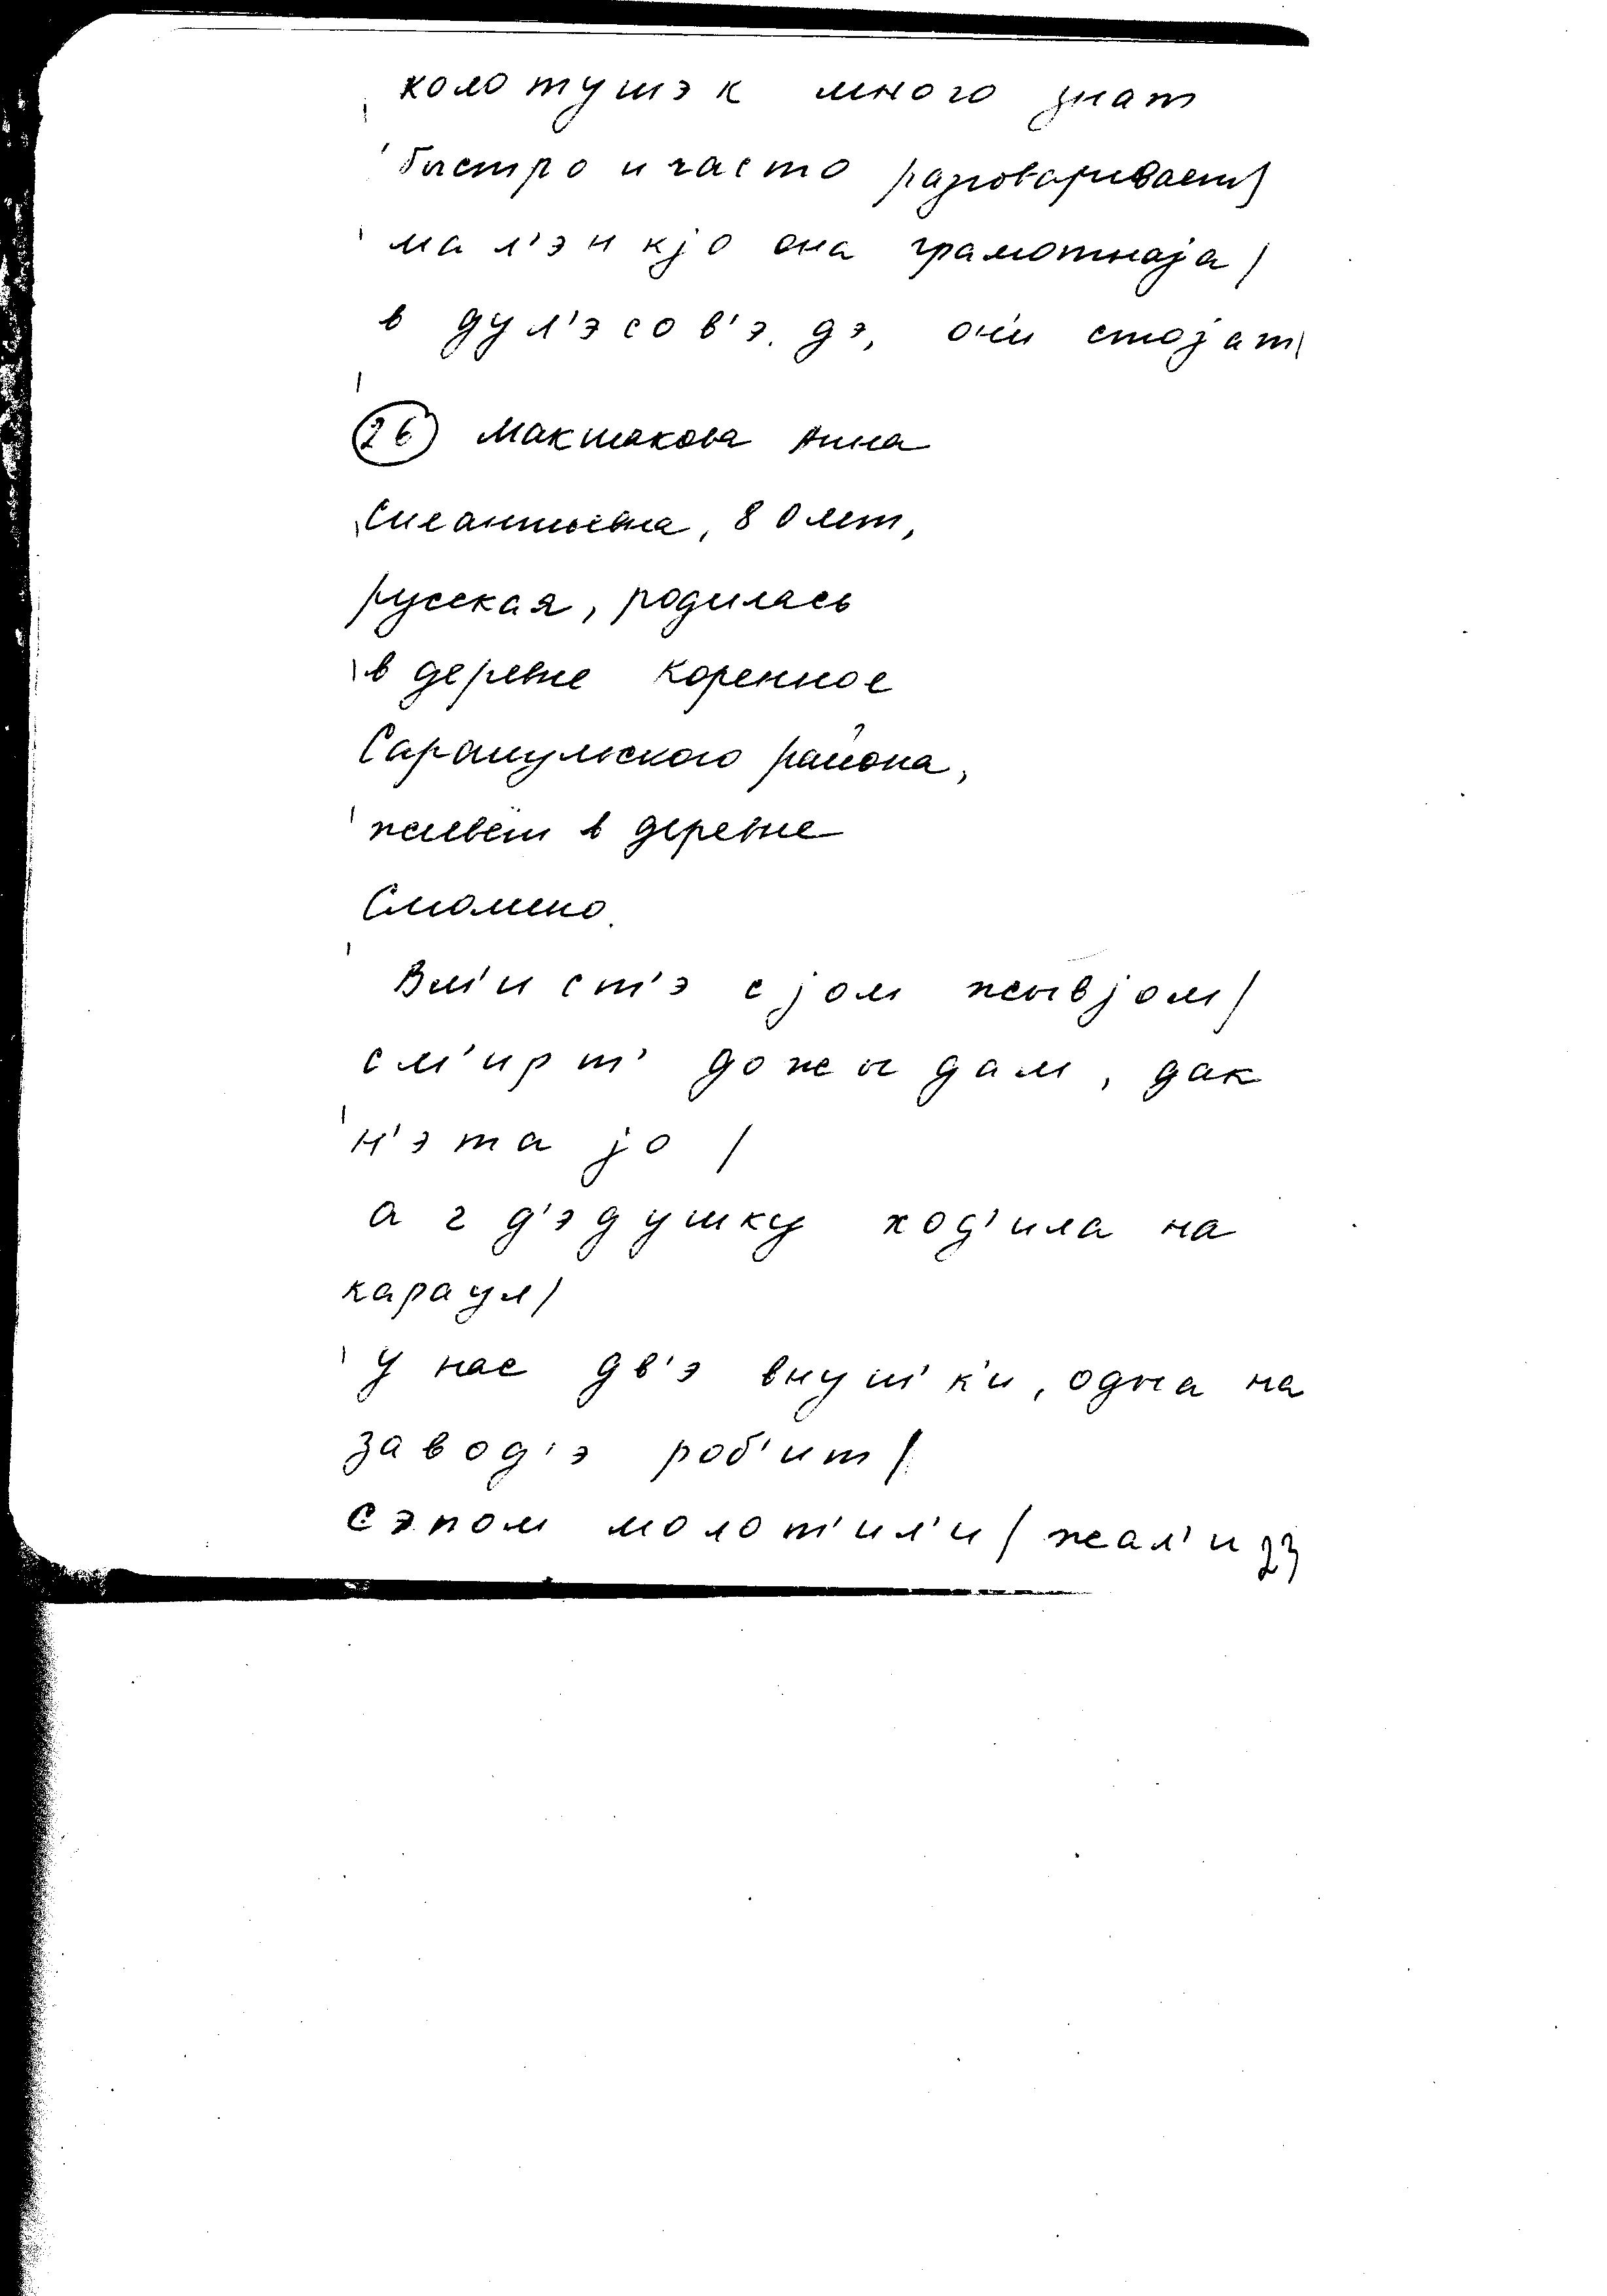 колотушэк много знат
быстро и часто разговаривает/
мал'энкjо она грамотнаjа/
в дул'эсов'э. дэ, он'и стоjат/
26 Макшакова Анна
Силантьевна, 80 лет,
русская, родилась
в деревне Коренное
Сарапульского района,
живёт в деревне
Смолино.
Вм'ист'э с jом жывjом/
см'ирт' дожыдам, дак
н'эта jо /
а г д'эдушку ход'ила на
караул/
У нас дв'э внуш'к'и, одна на
завод'э роб'ит/
сэпом молот'ил'и/ жал'и
23